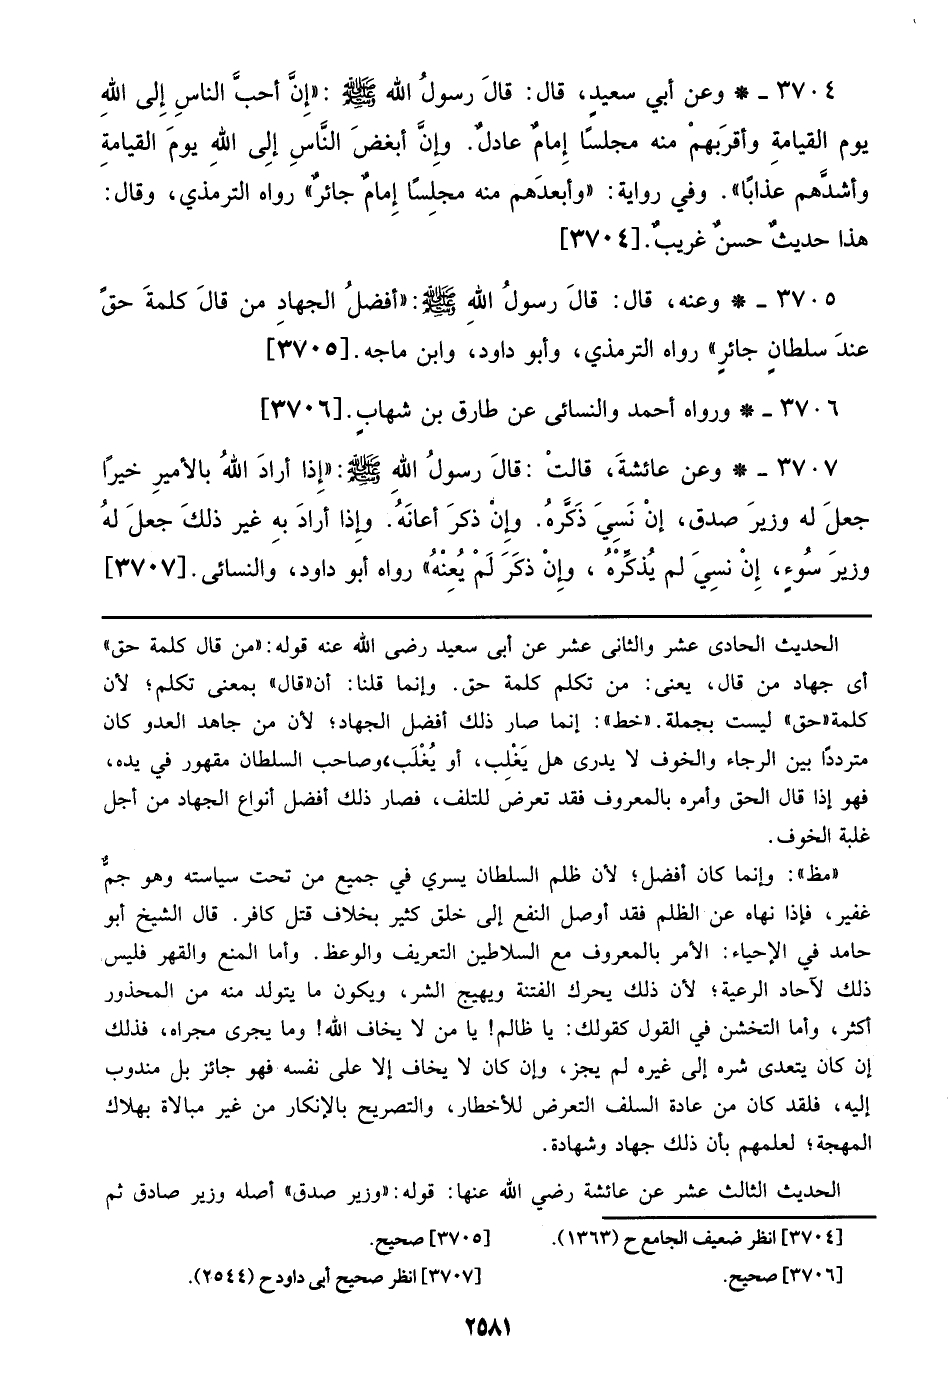 ٣٧٠٤ ـ * وعن أبي سعيدٍ، قال: قالَ رسولُ الله ﷺ: «إنَّ أحبَّ الناسِ إلى اللهِ
يوم القيامةِ وأقربَهمْ منه مجلسًا إمامٌ عادلٌ. وإنَّ أبغضَ النَّاسِ إلى اللهِ يومَ القيامةِ
وأشدَّهم عذابًا». وفي رواية: «وأبعدَهم منه مجلِسًا إمامٌ جائرٌ» رواه الترمذي، وقال:
هذا حديثٌ حسنٌ غريبٌ. [٣٧٠٤]
٣٧٠٥ ـ * وعنه، قال: قالَ رسولُ اللهِ ﷺ: «أفضلُ الجهادِ من قالَ كلمةَ حقٍّ
عندَ سلطانٍ جائرٍ» رواه الترمذي، وأبو داود، وابن ماجه. [٣٧٠٥]
٣٧٠٦ ـ * ورواه أحمد والنسائى عن طارق بن شهابٍ. [٣٧٠٦]
٣٧٠٧ ـ * وعن عائشةَ، قالتْ: قالَ رسولُ اللهِ ﷺ: «إذا أرادَ اللهُ بالأميرِ خيرًا
جعلَ له وزيرَ صدق، إنْ نَسِيَ ذَكَّرهُ. وإنْ ذكرَ أعانَهُ. وإذا أرادَ بهِ غير ذلكَ جعلَ لهُ
وزيرَ سُوءٍ، إنْ نسِيَ لم يُذكِّرْهُ، وإنْ ذكَرَ لَمْ يُعِنْهُ» رواه أبو داود، والنسائى. [٣٧٠٧]
الحديث الحادى عشر والثانى عشر عن أبى سعيد رضى الله عنه قوله: «من قال كلمة حق»
أى جهاد من قال، يعنى: من تكلم كلمة حق. وإنما قلنا: أن«قال» بمعنى تكلم؛ لأن
كلمة«حق» ليست بجملة. «خط»: إنما صار ذلك أفضل الجهاد؛ لأن من جاهد العدو كان
مترددًا بين الرجاء والخوف لا يدرى هل يَغْلِب، أو يُغْلَب، وصاحب السلطان مقهور في يده،
فهو إذا قال الحق وأمره بالمعروف فقد تعرض للتلف، فصار ذلك أفضل أنواع الجهاد من أجل
غلبة الخوف.
«مظ»: وإنما كان أفضل؛ لأن ظلم السلطان يسري في جميع من تحت سياسته وهو جمٌّ
غفير، فإذا نهاه عن الظلم فقد أوصل النفع إلى خلق كثير بخلاف قتل كافر. قال الشيخ أبو
حامد في الإحياء: الأمر بالمعروف مع السلاطين التعريف والوعظ. وأما المنع والقهر فليس
ذلك لآحاد الرعية؛ لأن ذلك يحرك الفتنة ويهيج الشر، ويكون ما يتولد منه من المحذور
أكثر، وأما التخشن في القول كقولك: يا ظالم! يا من لا يخاف الله! وما يجرى مجراه، فذلك
إن كان يتعدى شره إلى غيره لم يجز، وإن كان لا يخاف إلا على نفسه فهو جائز بل مندوب
إليه، فلقد كان من عادة السلف التعرض للأخطار، والتصريح بالإنكار من غير مبالاة بهلاك
المهجة؛ لعلمهم بأن ذلك جهاد وشهادة.
الحديث الثالث عشر عن عائشة رضي الله عنها: قوله: «وزير صدق» أصله وزير صادق ثم
[٣٧٠٤] انظر ضعيف الجامع ح (١٣٦٣). [٣٧٠٥] صحيح.
[٣٧٠٦] صحيح. [٣٧٠٧] انظر صحيح أبى داود ح (٢٥٤٤).
٢٥٨١